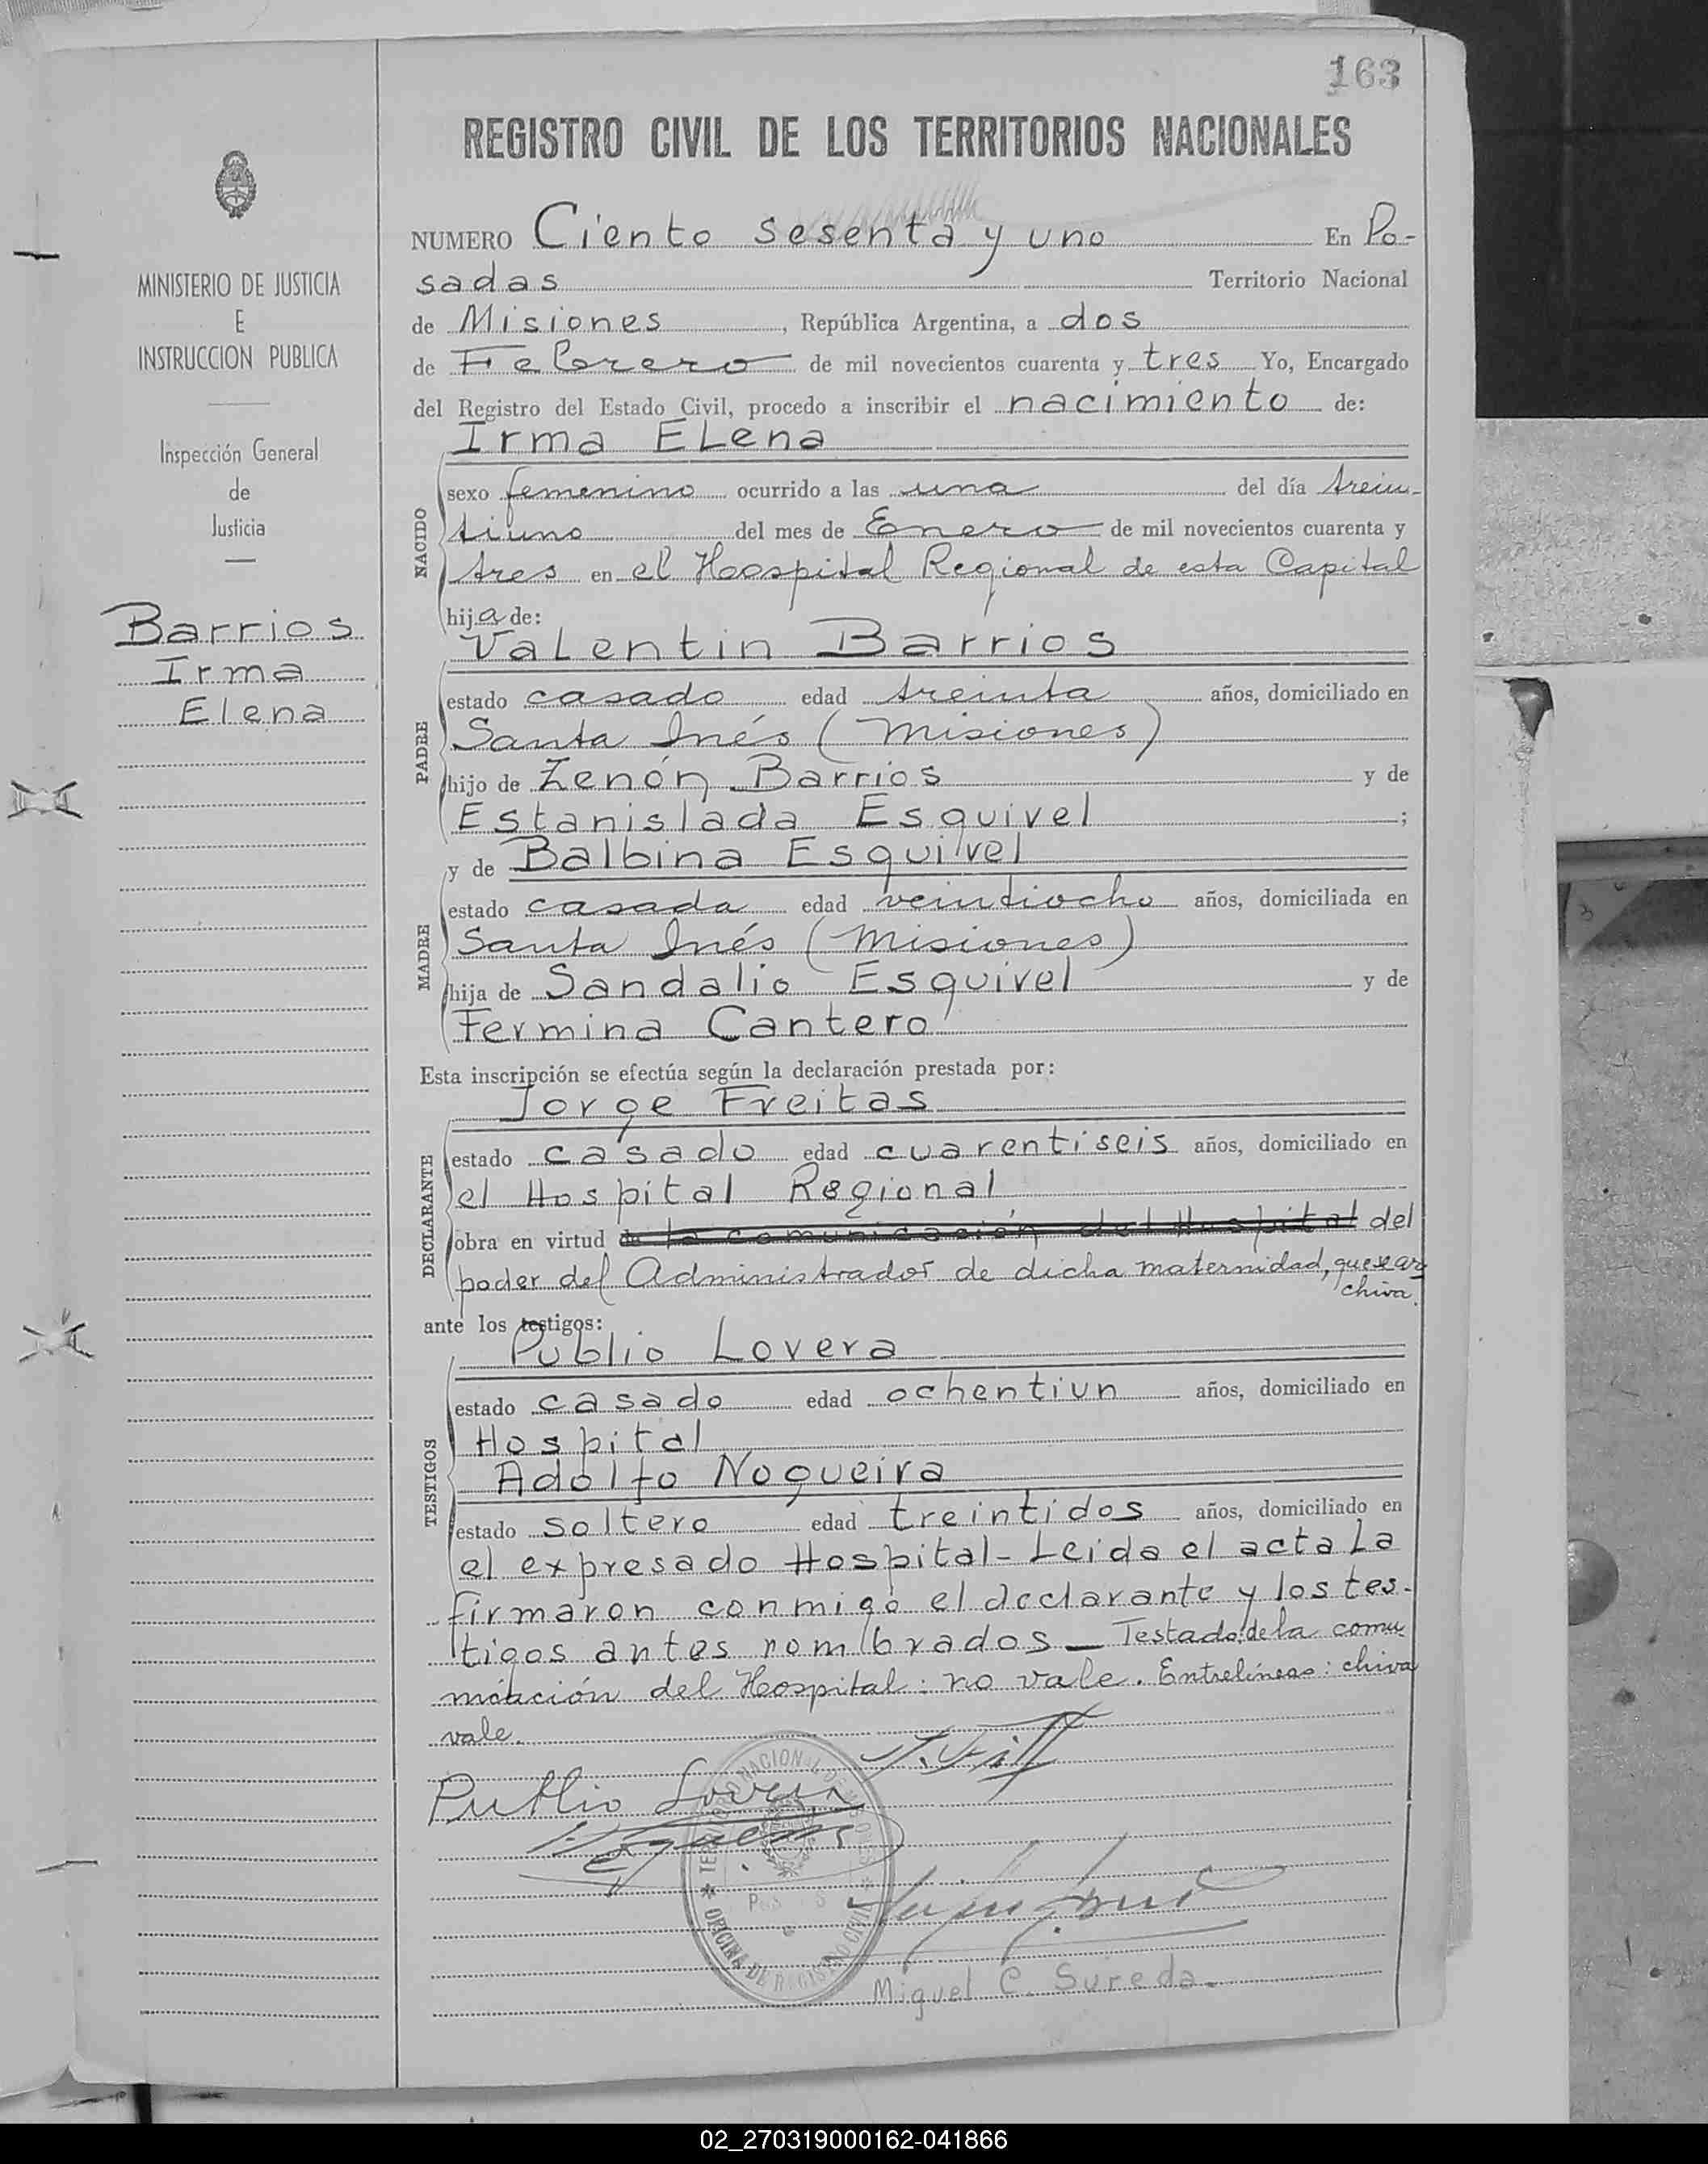 163
REGISTRO CIVIL DE LOS TERRITORIOS NACIONALES
MINISTERIO DE JUSTICIA
E
INSTRUCCION PUBLICA
Inspección General
de
Justicia
Barrios
Irma
Elena
NUMERO Ciento sesenta y uno En Po-
sadas Territorio Nacional
de Misiones, República Argentina, a dos
de Febrero de mil novecientos cuarenta y tres Yo, Encargado
del Registro del Estado Civil, procedo a inscribir el nacimiento de:
Irma ELena
NACIDO
sexo femenino ocurrido a las una del día trein-
tiuno del mes de Enero de mil novecientos cuarenta y
tres en el Hospital Regional de esta Capital
hija de:
Valentin Barrios
PADRE
estado casado edad treinta años, domiciliado en
Santa Inés (Misiones)
hijo de Zenón Barrios y de
Estanislada Esquivel ;
y de Balbina Esquivel
MADRE
estado casada edad veintiocho años, domiciliada en
Santa Inés (Misiones)
hija de Sandalio Esquivel y de
Fermina Cantero
Esta inscripción se efectúa según la declaración prestada por:
Jorge Freitas
DECLARANTE
estado casado edad cuarentiseis años, domiciliado en
el Hospital Regional
obra en virtud de la comunicación del Hospital del
poder del Administrador de dicha maternidad, que se ar
chiva.
ante los testigos:
Publio Lovera
TESTIGOS
estado casado edad ochentiun años, domiciliado en
Hospital
Adolfo Nogueira
estado soltero edad treintidos años, domiciliado en
el expresado Hospital - Leida el acta La
firmaron conmigo el declarante y los tes-
tigos antes nombrados - Testado: de la comu
nicación del Hospital: no vale. Entrelíneas: chiva
vale.
Publio Lovera
TERRITORIO NACIONAL DE MISIONES
OFICINA DE REGISTRO CIVIL
Miguel C. Sureda.
02_270319000162-041866